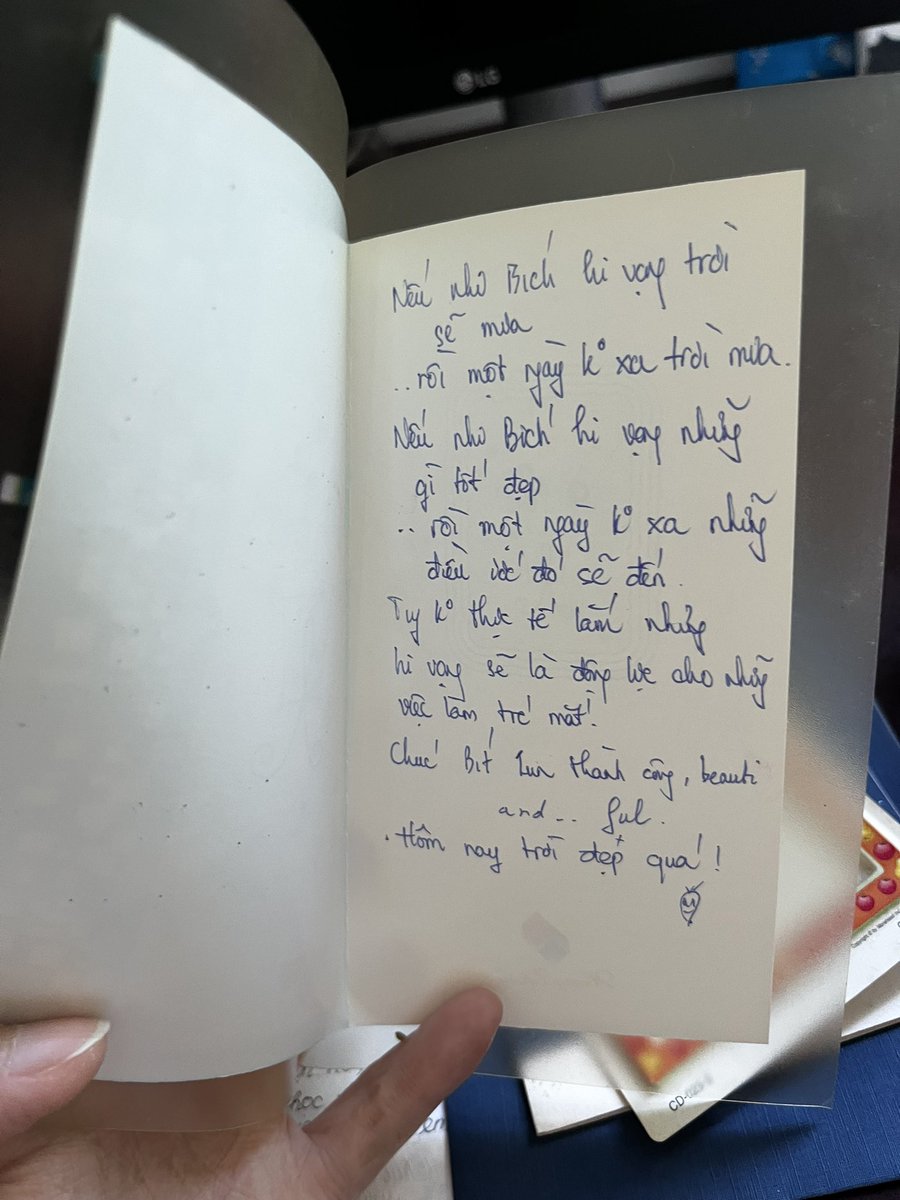 LG
Nếu như Bích hi vọng trời
sẽ mưa
..rồi một ngày k° xa trời mưa.
Nếu như Bích hi vọng những
gì tốt đẹp
.. rồi một ngày k° xa những
điều ước đó sẽ đến.
Tuy k° thực tế lắm những
hi vọng sẽ là động lực cho những
việc làm trc mắt.
Chúc Bít luôn thành công, beauti
and.. ful.
. Hôm nay trời đẹp quá!
học
em
CD-029